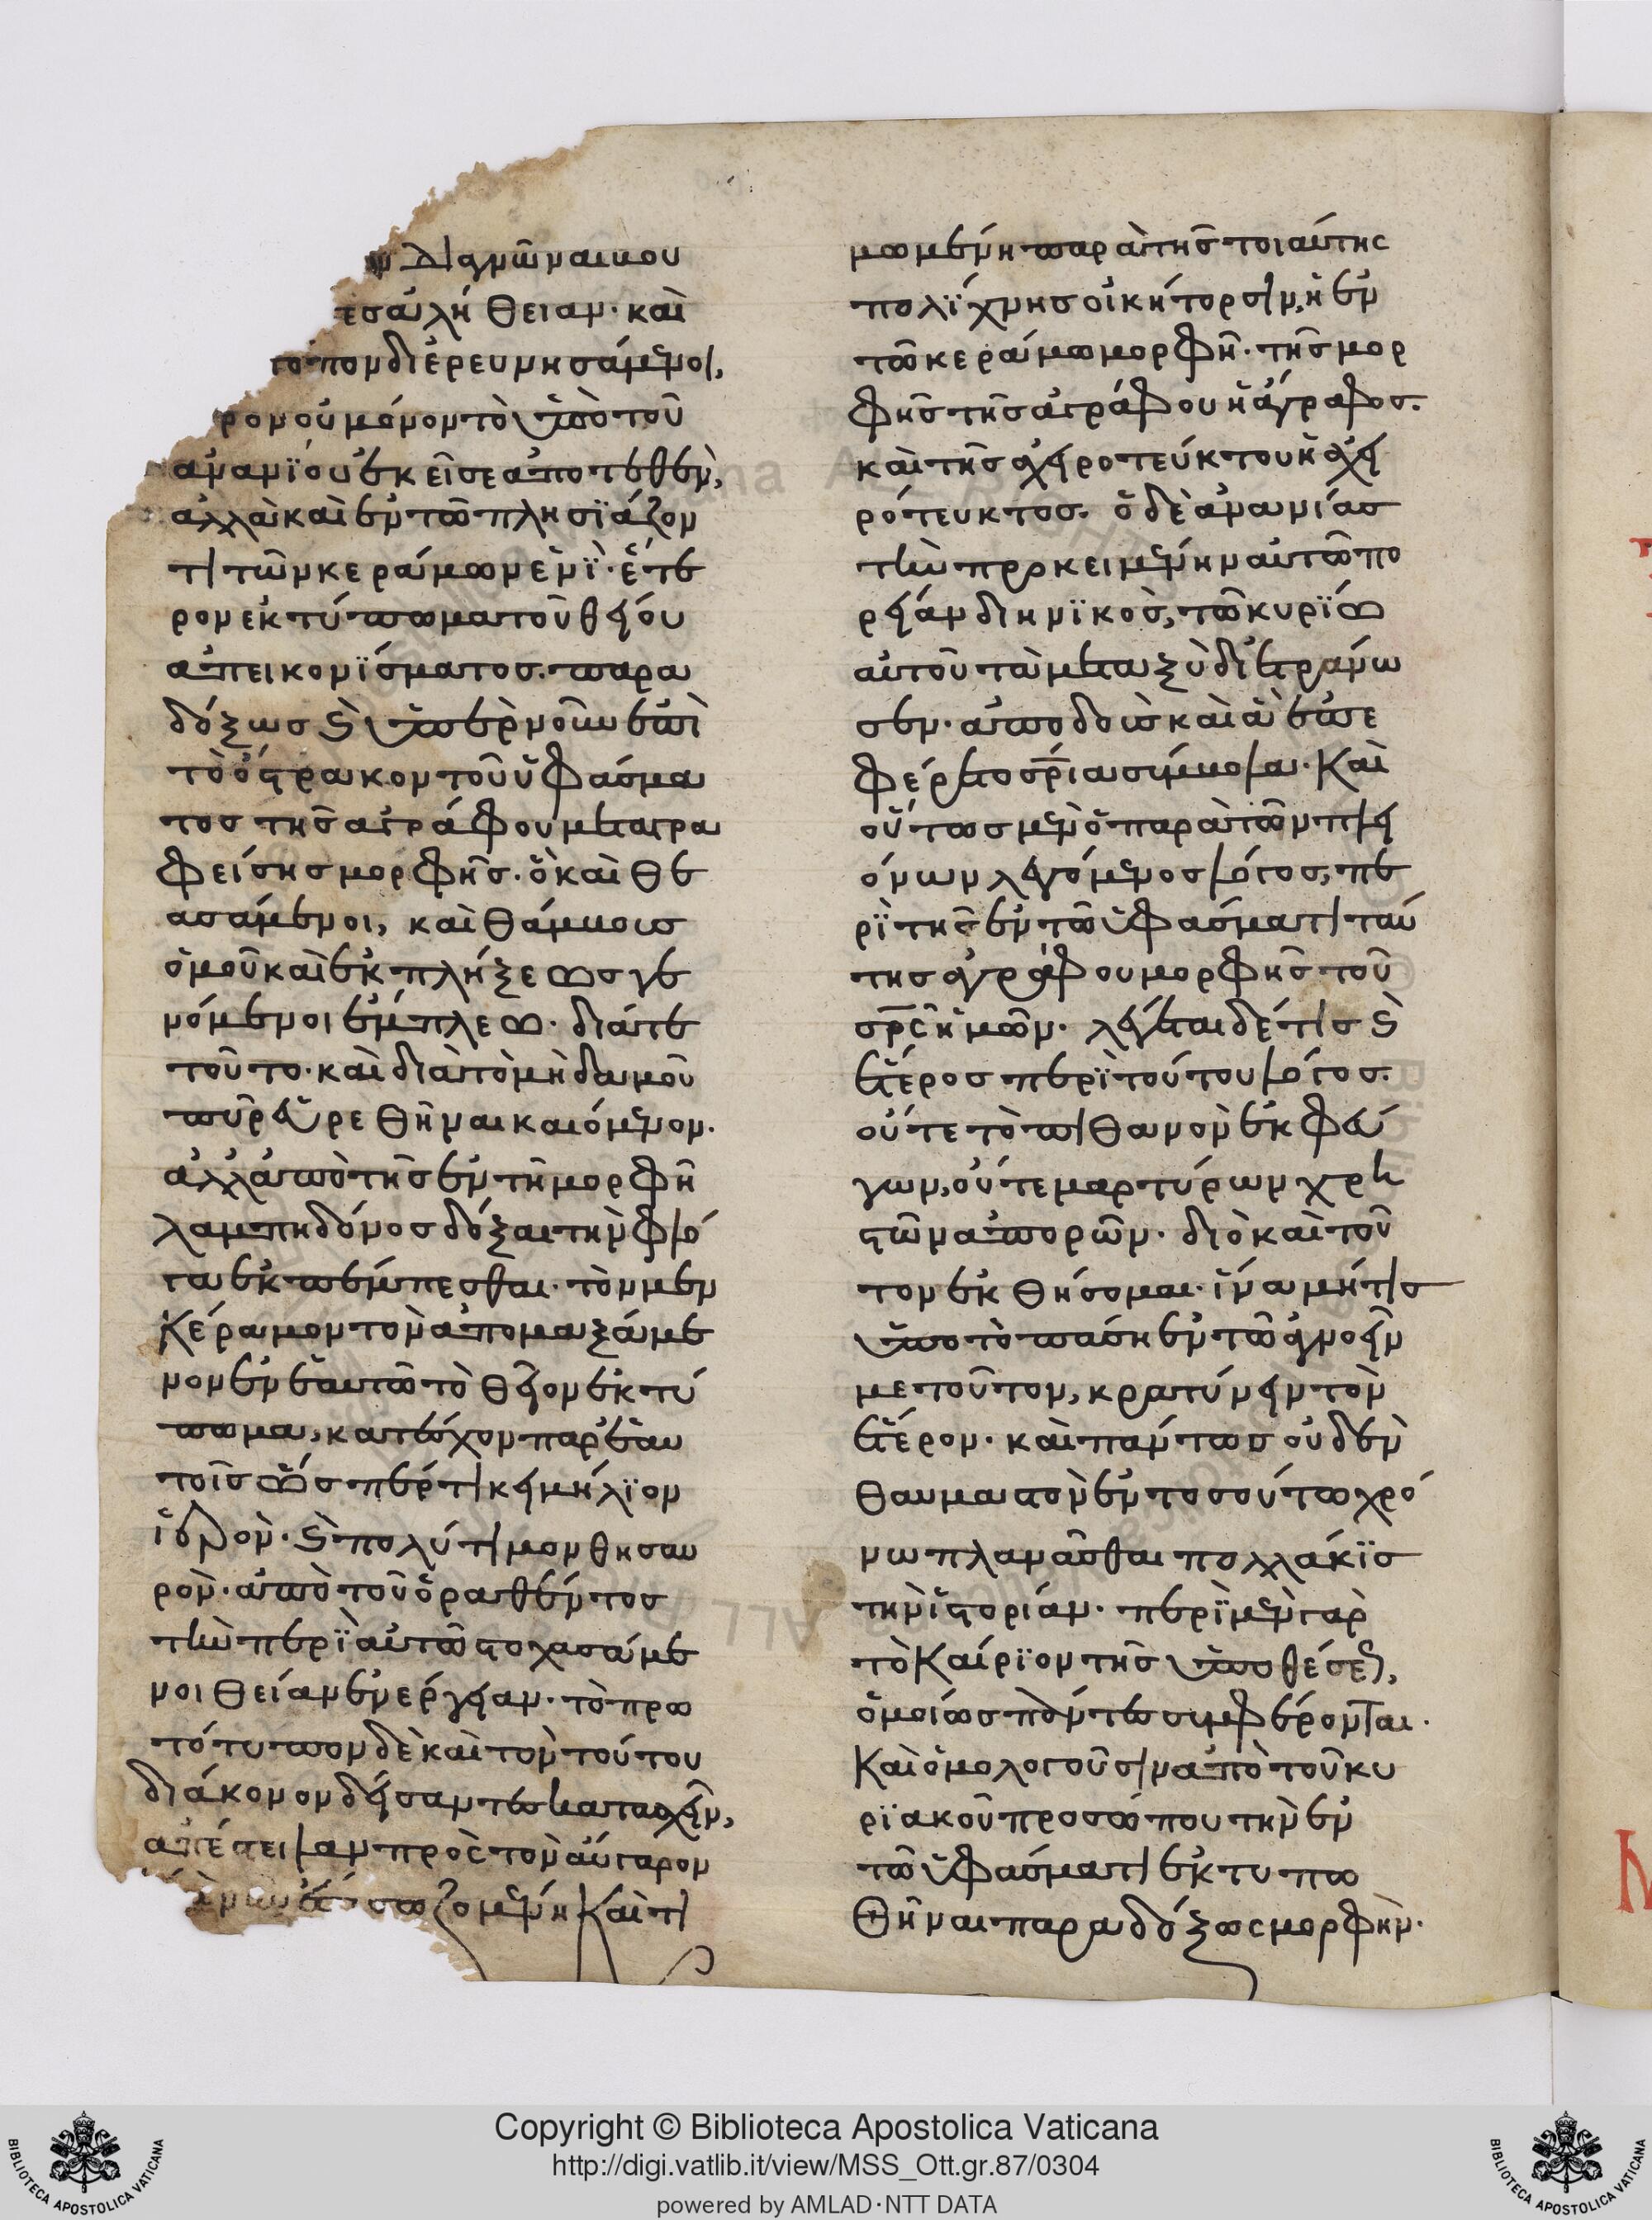 διαγνῶναι κου
τες ἀλήθειαν· καὶ
τόπον διερευνησάμενοι,
ρον οὐ μόνον τὸ ὑπὸ τοῦ
ἀνανίου ἐκεῖσε ἀποτεθὲν,
ἀλλὰ καὶ ἐν τῶ πλησϊάζον
τι τῶν κεράμων ἑνὶ· ἕτε
ρον ἐκτύπωμα τοῦ θείου
ἀπεικονίσματος. παρα
δόξως καὶ ὑπὲρ νοῦν ἐπὶ
τὸ ὄστρακον τοῦ ὑφάσμα
τος τῆς ἀγράφου μεταγρα
φείσης μορφῆς. ὃ καὶ θε
ασάμενοι, καὶ θάμβους
ὁμοῦ καὶ ἐκπλήξεως γε
νόμενοι ἔμπλεω. διά τε
τοῦτο· καὶ διὰ τὸ μὴδαμοῦ
πῦρ εὑρεθῆναι καιόμενον.
ἀλλ' ἀπὸ τῆς ἐν τῆ μορφῆ
λαμπηδόνος δόξαι τὴν φλό
γα ἐκπέμπεσθαι. τὸν μὲν
Κέραμον τὸν ἀπομαξάμε
νον ἐν ἑαυτῶ τὸ θεῖον ἐκτύ
πωμα, κατέχον παρ' ἑαυ
τοῖς ὥσπερ τι κειμήλϊον
ἱερὸν· καὶ πολύτιμον θησαυ
ρὸν· ἀπὸ τοῦ ὁραθέντος
τὴν περὶ αὐτῶ στοχασάμε
νοι θείαν ἐνέργειαν. τὸ πρω
τότυπον δὲ καὶ τὸν τούτου
διάκονον δείσαντες κατασχεῖν,
ἀπέστειλαν πρὸς τὸν αὔγαρον
σωζομένη Καὶ τι
μωμένη παρὰ τῆς τοιαύτης
πολίχνης οἰκήτορσιν, ἡ ἐν
τῶ κεράμω μορφῆ· τῆς μορ
φῆς τῆς ἀγράφου ἡ ἄγραφος.
καὶ τῆς ἀχειροτεύκτου ἡ ἀχει
ρότευκτος. ὁ δὲ ἀνανίας
τὴν προκειμένην αὐτῶ πο
ρείαν διηνϊκὸς, τῶ κυρίω
αὐτοῦ τὰ μεταξὺ διετράνω
σεν· ἀποδοὺς καὶ ἃ ἐπε
φέρετο σρίας σύμβολα. Καὶ
οὕτως μὲν ὁ παρὰ τῶν πλει
όνων λεγόμενος λόγος, πε
ρὶ τῆς ἐν τῶ ὑφάσματι ταύ
της ἀγράφου μορφῆς τοῦ
σρς ἡμῶν. λέγεται δέ τις καὶ
ἕτερος περὶ τούτου λόγος.
οὔτε τὸ πιθανὸν ἐκφεύ
γων, οὔτε μαρτύρων χρη
στῶν ἀπορῶν. διὸ καὶ τοῦ
τον ἐκθήσομαι. ἵνα μή τις
ὑποτοπάση ἐν τῶ ἀγνοεῖν
με τοῦτον, κρατύνειν τὸν
ἕτερον. καὶ πάντως οὐδὲν
θαυμαστὸν ἐν τοσούτω χρό
νω πλανᾶσθαι πολλάκϊς
τὴν ἱστορίαν. περὶ μὲν γὰρ
τὸ Καίρϊον τῆς ὑποθέσεως,
ὁμοίως πάντες συμφέρονται.
Καὶ ὁμολογοῦσιν ἀπὸ τοῦ κυ
ρϊακοῦ προσώπου τὴν ἐν
τῶ ὑφάσματι ἐκτυπω
θῆναι παραδόξως μορφὴν.
Copyright © Biblioteca Apostolica Vaticana
http://digi.vatlib.it/view/MSS_Ott.gr.87/0304
powered by AMLAD·NTT DATA
BIBLIOTECA APOSTOLICA VATICANA
BIBLIOTECA APOSTOLICA VATICANA